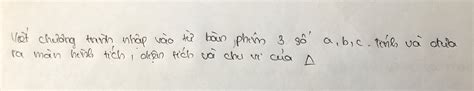 Viết chương trình nhập vào từ bàn phím 3 số a, b, c. tính và đưa
ra màn hình tích, diện tích và chu vi của Δ